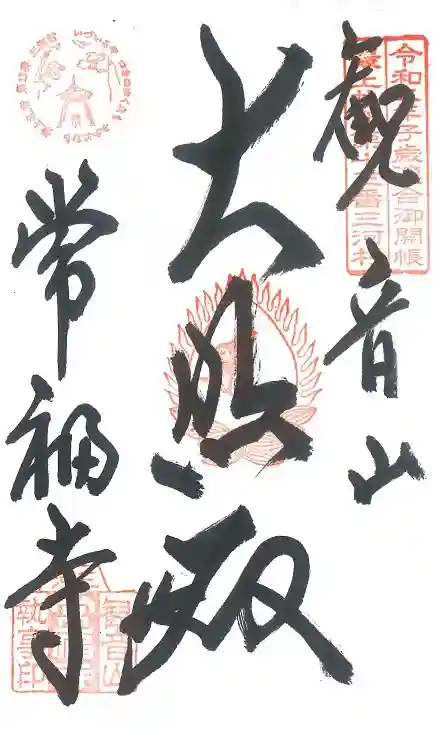 令和 子歳連合御開帳
番三河村
観音山
大悲殿
常福寺
観音山
執事印